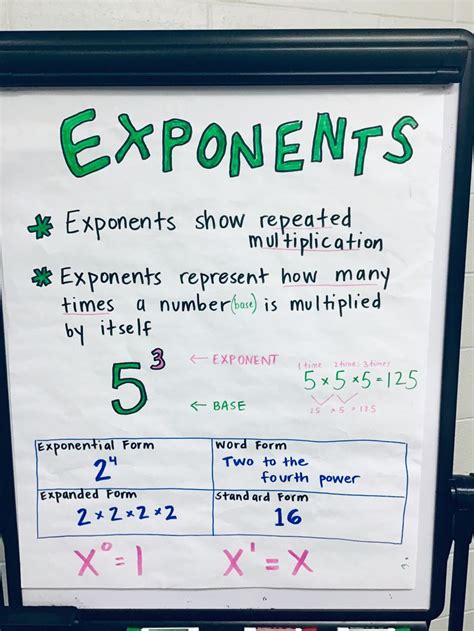 EXPONENTS
* Exponents show repeated
multiplication
* Exponents represent how many
times a number (base) is multiplied
by itself
5³ ← EXPONENT
← BASE
1 time 2 times 3 times
5 × 5 × 5 = 125
25 × 5 = 125
Exponential Form
2⁴
Word Form
Two to the
fourth power
Expanded Form
2 × 2 × 2 × 2
Standard Form
16
X⁰ = 1 X¹ = X